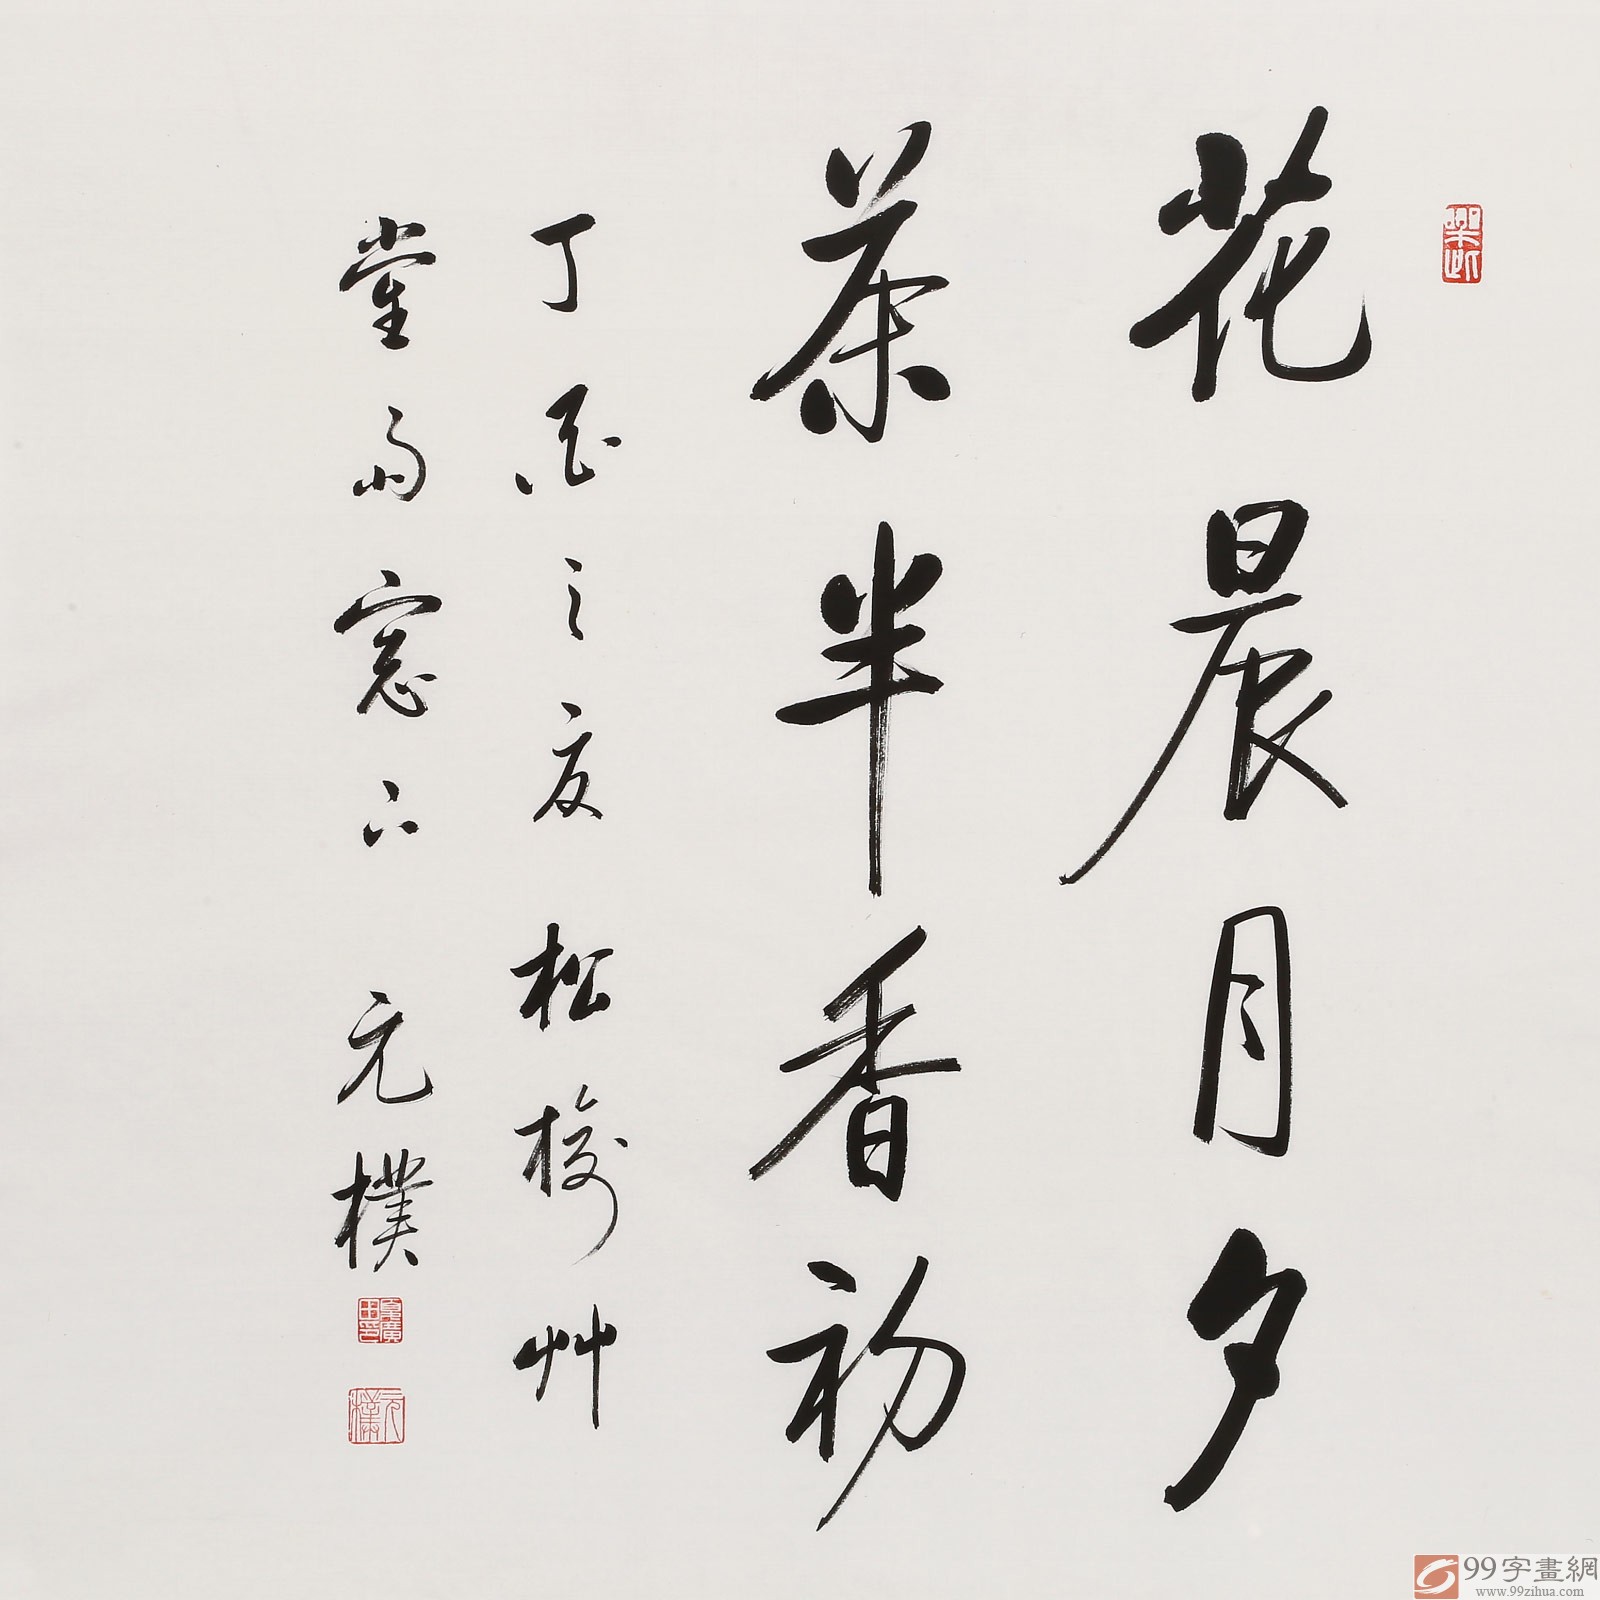 花晨月夕
茶半香初
丁酉之夏 松 艸
堂雨窓下 元樸
元樸
99字畫網
www.99zihua.com